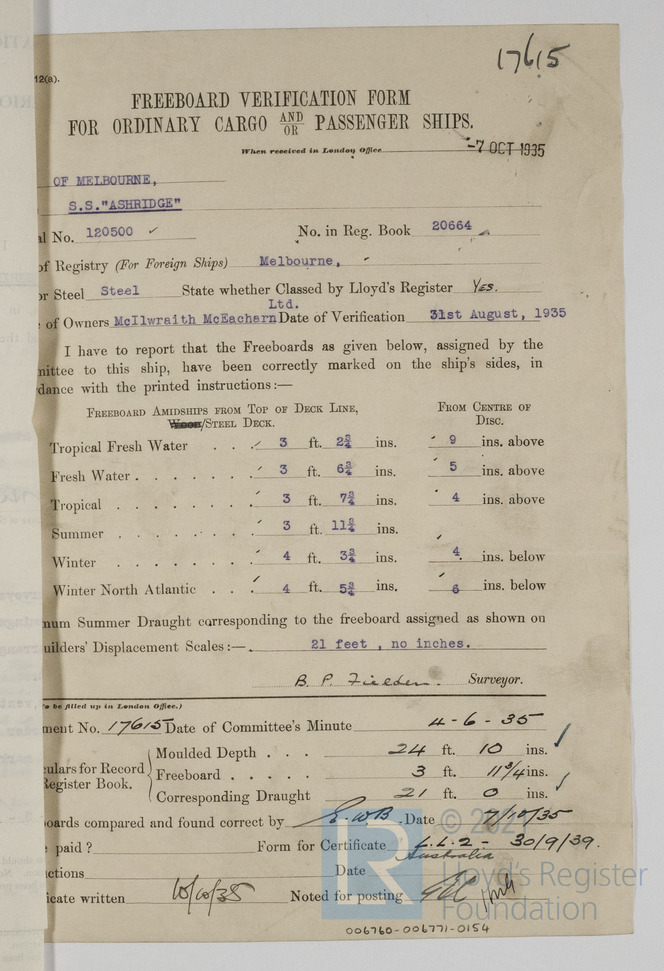 17615
12(a).
FREEBOARD VERIFICATION FORM
FOR ORDINARY CARGO AND/OR PASSENGER SHIPS.
When received in London Office -7 OCT 1935
OF MELBOURNE,
S.S."ASHRIDGE"
l No. 120500 ✓ No. in Reg. Book 20664
of Registry (For Foreign Ships) Melbourne,
or Steel Steel State whether Classed by Lloyd's Register Yes.
Ltd.
of Owners McIlwraith McEacharn Date of Verification 31st August, 1935
I have to report that the Freeboards as given below, assigned by the
mittee to this ship, have been correctly marked on the ship's sides, in
dance with the printed instructions:—
FREEBOARD AMIDSHIPS FROM TOP OF DECK LINE, FROM CENTRE OF
WOOD/STEEL DECK. DISC.
Tropical Fresh Water . . . 3 ft. 2¾ ins. 9 ins. above
Fresh Water . . . . . . 3 ft. 6¾ ins. 5 ins. above
Tropical . . . . . . . 3 ft. 7¾ ins. 4 ins. above
Summer . . . . . . . 3 ft. 11¾ ins.
Winter . . . . . . . 4 ft. 3¾ ins. 4 ins. below
Winter North Atlantic . . . 4 ft. 5¾ ins. 6 ins. below
num Summer Draught corresponding to the freeboard assigned as shown on
uilders' Displacement Scales:— 21 feet , no inches.
B. P. Fielden. Surveyor.
o be filled up in London Office.)
ment No. 17615 Date of Committee's Minute 4-6-35
Moulded Depth . . . 24 ft. 10 ins. ✓
ulars for Record Freeboard . . . . . 3 ft. 11 3/4 ins.
Register Book. Corresponding Draught 21 ft. 0 ins. ✓
oards compared and found correct by E.WB. Date 7/10/35
paid ? Form for Certificate L.L.2 - 30/9/39.
Australia
ctions Date
icate written 10/10/35 Noted for posting
© 2021
LR
Lloyd's Register
Foundation
006760-006771-0154